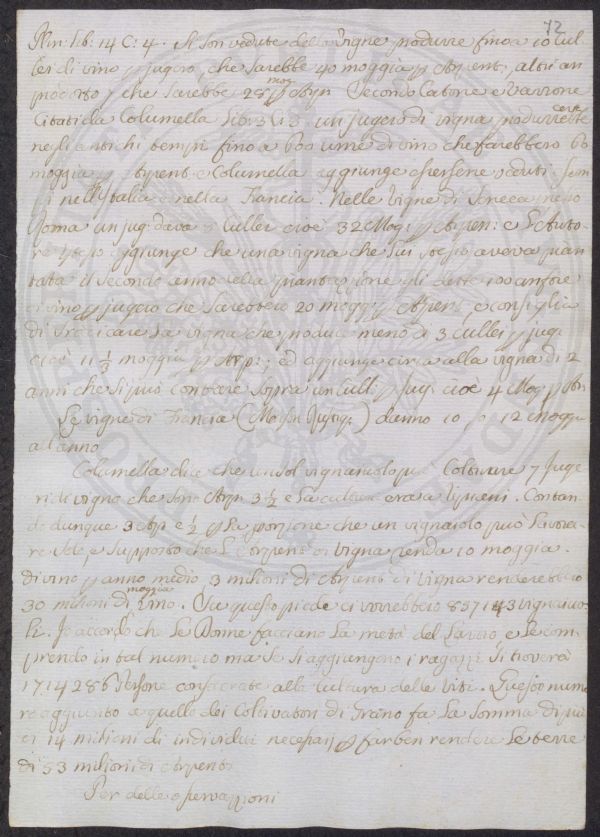 72
Plin: lib: 14 C: 4. Si son vedute delle Vigne produrre fino a 10 Cul
lei di vino p jugero, che sarebbe 40 moggia p Arpent, altri an
che sarebbe 28 mog p Arp. Secondo Catone e Varrone
Citati da Columella Lib: 3 C: 3 un jugero di vigna produrrebbe
negli antichi tempi fino a 600 urne di vino che farebbero 60
moggia p Arpent e Columella aggiunge esserne veduti
nell'Italia e nella Francia. Nelle Vigne di Seneca presso
Roma un jug. dava 8 Cullei cioè 32 Mog: p Arpen: e l'Auto-
re stesso aggiunge che una vigna che lui stesso aveva pian
tata il secondo anno della piantazione gli dette 100 anfore
di vino p jugero che sarebbero 20 moggi p Arpent, e consiglia
di sradicare la vigna che produce meno di 3 Cullei p jug:
cioè 11 1/3 moggia p Arp:, ed aggiunge circa alla vigna di 2
anni che si può contare sopra un Cull: p jug: cioè 4 Mog: p Arp:
Le vigne di Francia (Mayson Rustiq:) danno 10 o 12 Moggia
all'anno
Columella dice che un sol vignaiuolo può Coltivare 7 Juge
ri di vigna che sono Arp. 3 1/2 e la cultura era a
Contan
do dunque 3 Arp e 1/2 p la porzione che un vignaiolo può lavora-
re solo, e supposto che l'Arpent di vigna renda 10 moggia
di vino p anno medio, 3 milioni di Arpent di vigna renderebbero
30 milioni di moggia vino. Su questo piede ci vorrebbero 857143 vignaiuo-
li. Io accordo che le Donne facciano la metà del lavoro e le com
prendo in tal numero ma se si aggiungono i ragazzi si troverà
1714286 Persone consacrate alla cultura delle viti. Questo nume
ro aggiunto a quello dei Coltivatori di Grano fa la somma di più
di 14 milioni di individui necessarj p far ben rendere le terre
di 53 milioni di Arpents
Per delle osservazzioni